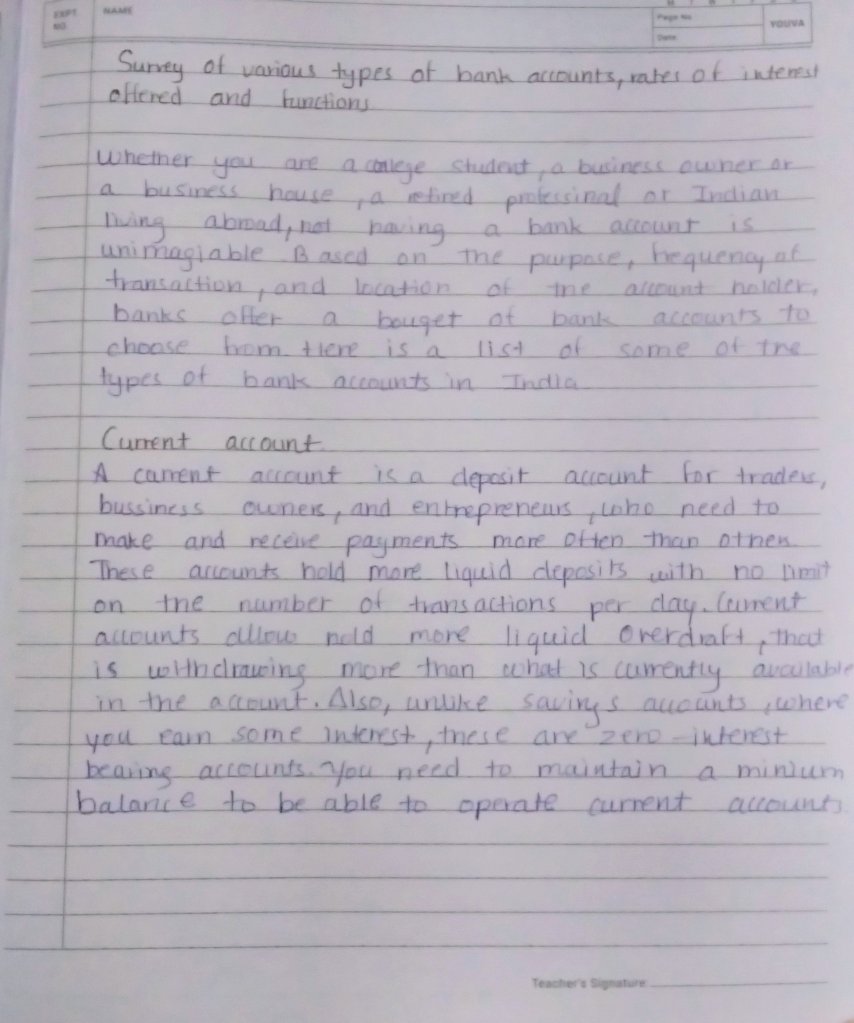 EXPT. NO.
NAME
Page No.
Date
YOUVA
Survey of various types of bank accounts, rates of interest
offered and functions
Whether you are a college student, a business owner or
a business house, a retired professinal or Indian
living abroad, not having a bank account is
unimagiable Based on the purpose, frequency of
transaction, and location of the account holder,
banks offer a bouget of bank accounts to
choose from. Here is a list of some of the
types of bank accounts in India
Current account.
A current account is a deposit account for traders,
bussiness owners, and entrepreneurs, who need to
make and receive payments more often than others
These accounts hold more liquid deposits with no limit
on the number of transactions per day. Current
accounts allow hold more liquid overdraft, that
is withdrawing more than what is currently available
in the account. Also, unlike savings accounts, where
you earn some interest, these are zero-interest
bearing accounts. You need to maintain a minium
balance to be able to operate current accounts
Teacher's Signature